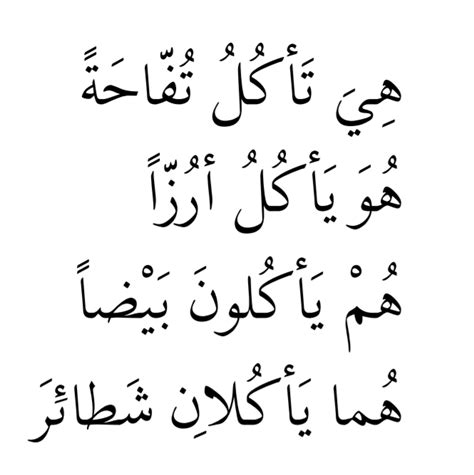 هِيَ تَأكُلُ تُفّاحَةً
هُوَ يَأكُلُ أرُزّاً
هُمْ يَأكُلونَ بَيْضاً
هُما يَأكُلانِ شَطائَِرَ